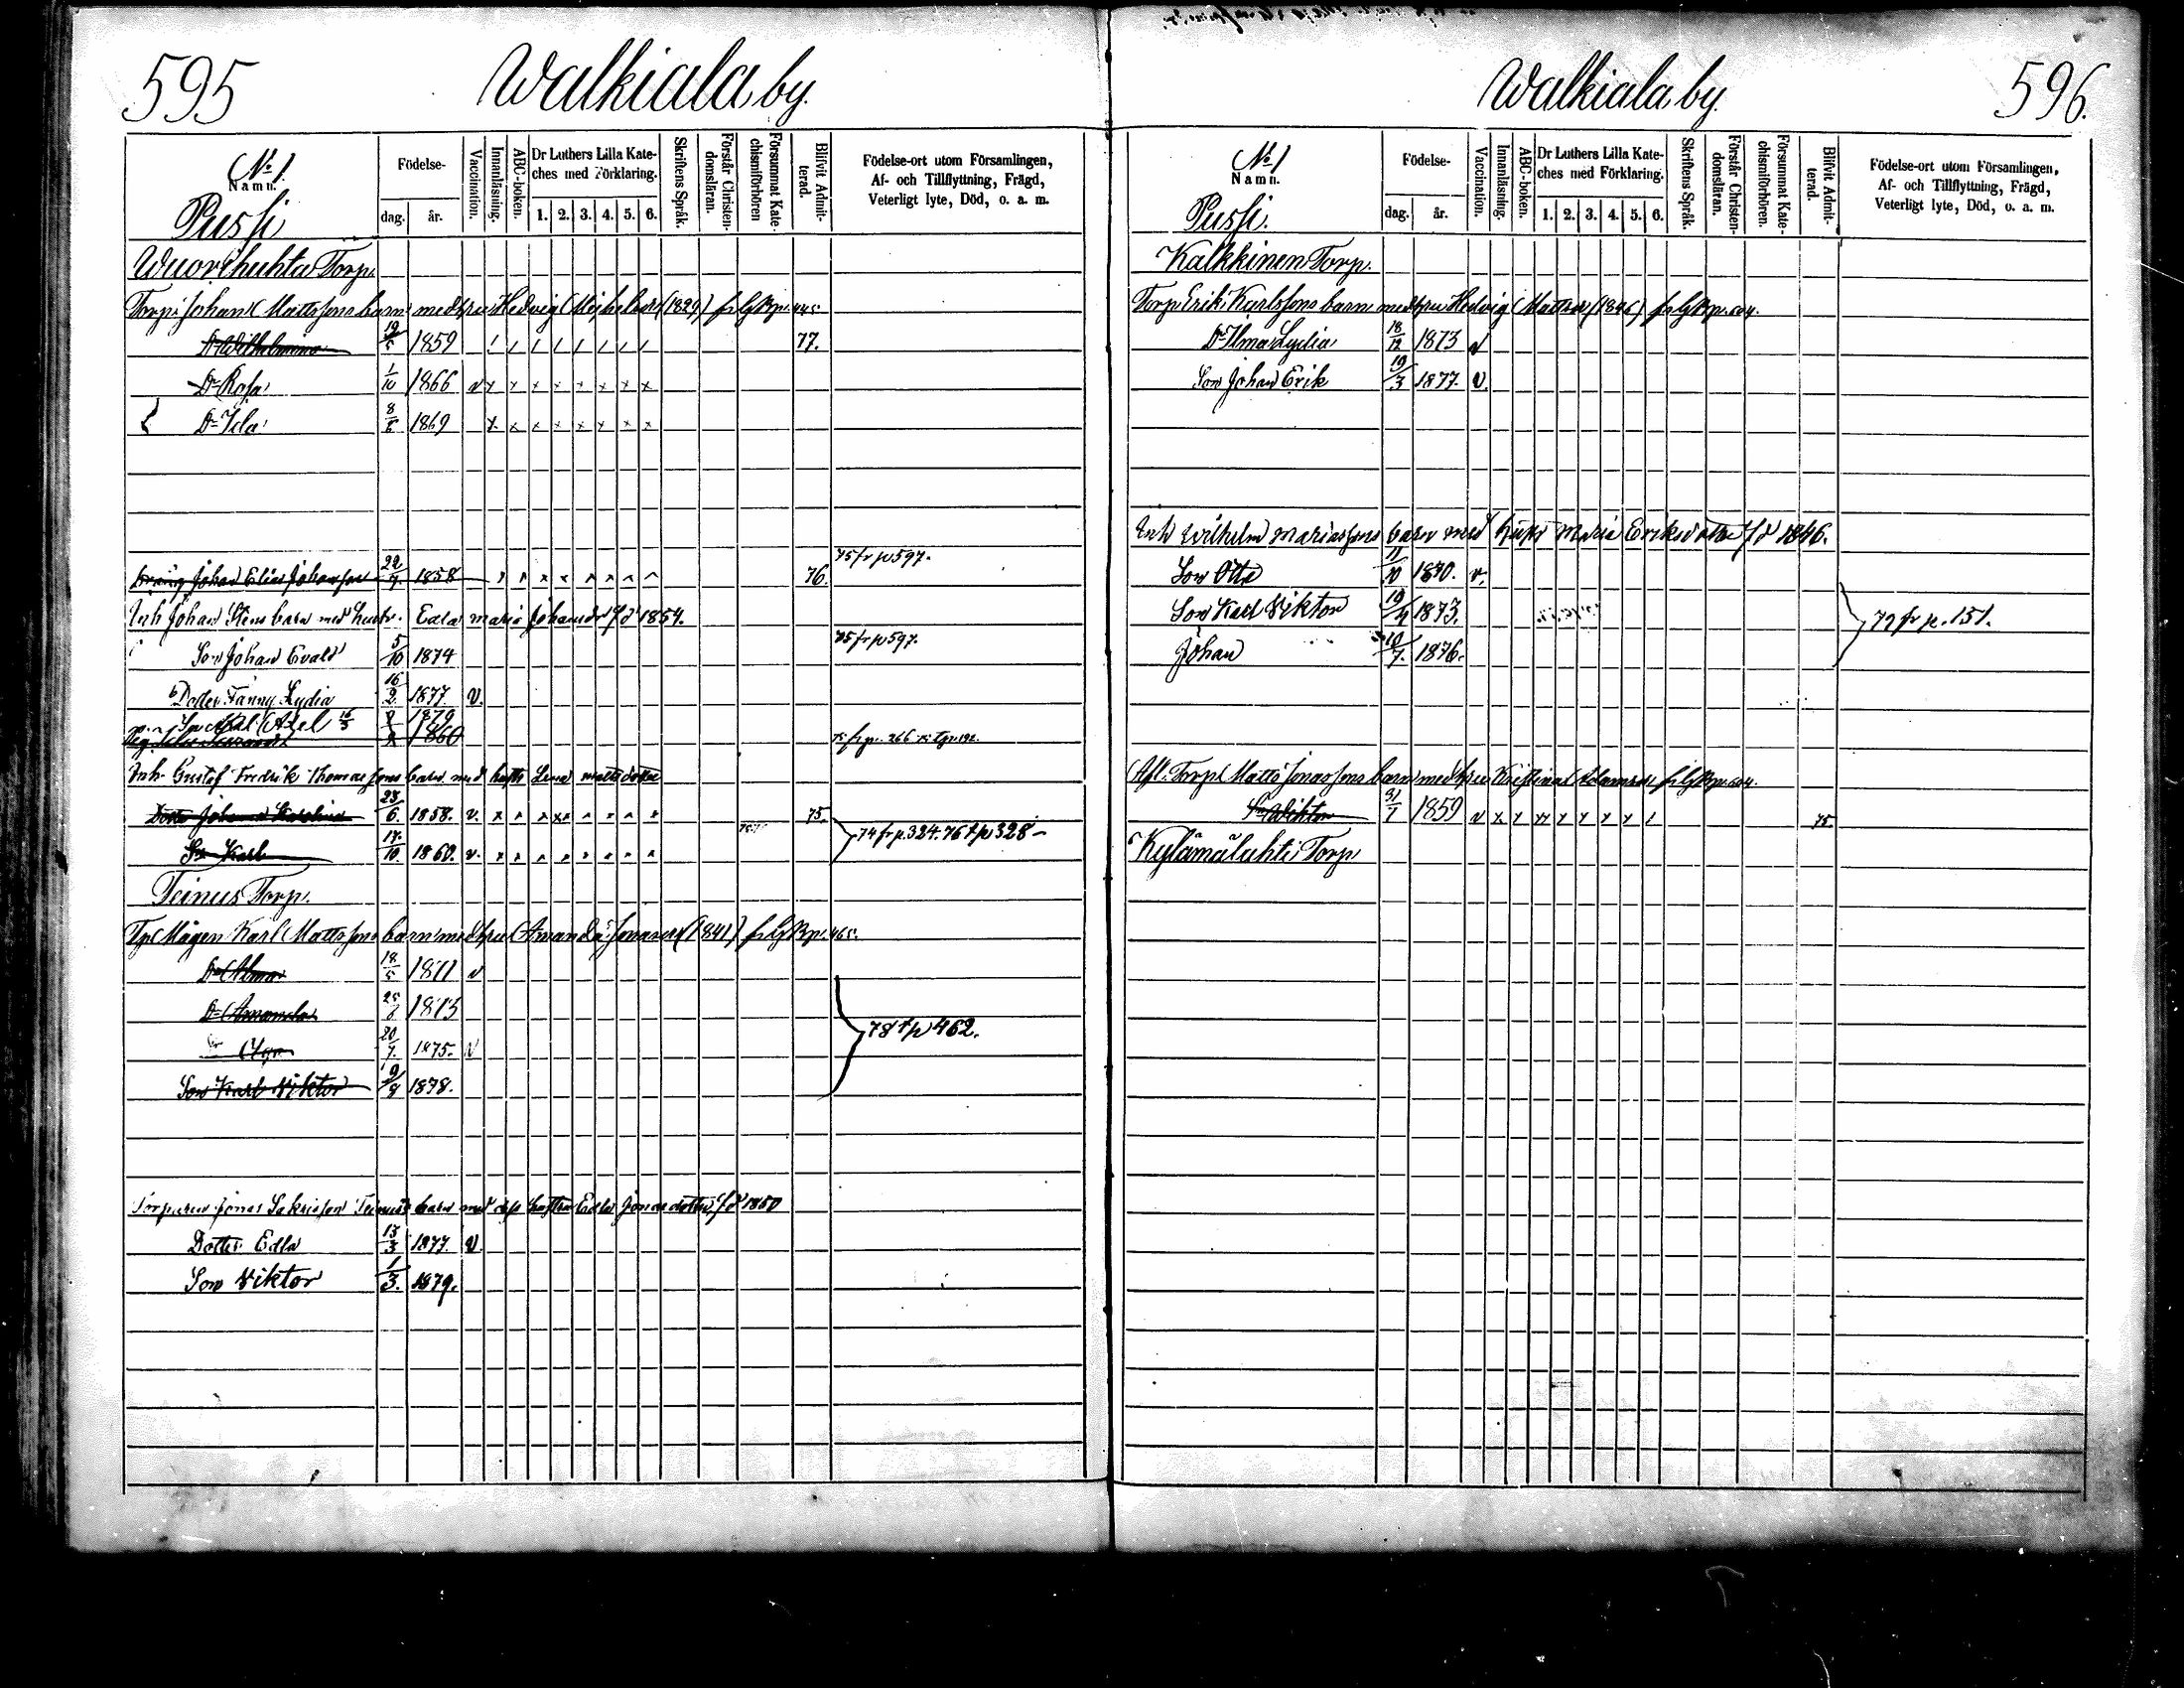 595 Walkiala by.
No 1.
Namn.
Pussi
Födelse-
dag. år.
Vaccination.
Innanläsning.
ABC-boken.
Dr Luthers Lilla Kateches med Förklaring.
1. 2. 3. 4. 5. 6.
Skriftens Språk.
Förstår Christendomsläran.
Försummat Katechismiförhören
Blifvit Admitterad.
Födelse-ort utom Församlingen,
Af- och Tillflyttning, Frägd,
Veterligt lyte, Död, o. a. m.
Wuorihuhta Torp.
Torp. Johan Mattssons barn med hu Hedvig (1829) fr lgBp. 445
Dr Wilhelmina 19/5 1859 77.
Dr Rosa 1/10 1866 v x x x x x x x x
Dr Ida 8/6 1869 x x x x x x x x
Dräng Johan Elias Johansson 22/7 1858 76. 75 fr p 597.
Inh Johan Stens barn med hustr. Edla Maria Johansdr fd 1854.
Son Johan Evald 5/10 1874 75 fr p 597.
Dotter Fanny Lydia 16/2 1877. v.
Axel 1879
1860 75 fr p. 266
Inh. Gustaf Fredrik Thomassons barn med hustr Lena Mattsdotter
Dotter Johanna Karolina 23/6 1858. v. 75.
Sn Karl 17/10 1860. v. 74 fr p. 324. 76 t p 328
Teinus Torp.
Tp Mågen Karl Mattssons barn med hu Amanda Jonasdr (1841) fr lgBp. 465.
Dr Alma 18/5 1871 v
Dr Amanda 1873
20/7. 1875. v 78 t p 462.
Son Karl Viktor 9/8 1878.
Torparen Jonas Sakrisson Teinus barn med dess hustru Edla Jonasdotter, fd 1850
Dotter Edla 13/3 1877. v.
Son Viktor 1/3. 1879.
Walkiala by. 596.
No 1
Namn.
Pussi.
Födelse-
dag. år.
Vaccination.
Innanläsning.
ABC-boken.
Dr Luthers Lilla Kateches med Förklaring.
1. 2. 3. 4. 5. 6.
Skriftens Språk.
Förstår Christendomsläran.
Försummat Katechismiförhören.
Blifvit Admitterad.
Födelse-ort utom Församlingen,
Af- och Tillflyttning, Frägd,
Veterligt lyte, Död, o. a. m.
Kalkkinen Torp.
Torp Erik Karlssons barn med hu Hedvig Mattsdr (1846) fr lgBp. 604.
Dr Ilma Lydia 18/12 1873 v
Son Johan Erik 19/3 1877. v.
Inh Wilhelm Mariassons barn med hustr Maria Eriksdotter fd 1846.
Son Otto 11/10 1870. v.
Son Karl Viktor 19/4 1873. 79 fr p. 151.
Johan 10/7. 1876.
Afl. Torp Matts Jonassons barn med hu Kristina Adamsdr fr lgBp. 604.
Sn Wiktor 31/7 1859 v 75
Kylämälahti Torp